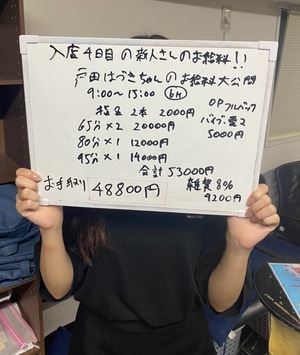 入店4日目の新人さんのお給料!!
戸田はづきちゃんのお給料大公開
9:00〜15:00 6H
指名 2本 2000円
65分×2 20000円
80分×1 12000円
95分×1 14000円
OPフルバック
バイブ電2
5000円
合計 53000円
お手取り 48800円
雑費8%
4200円